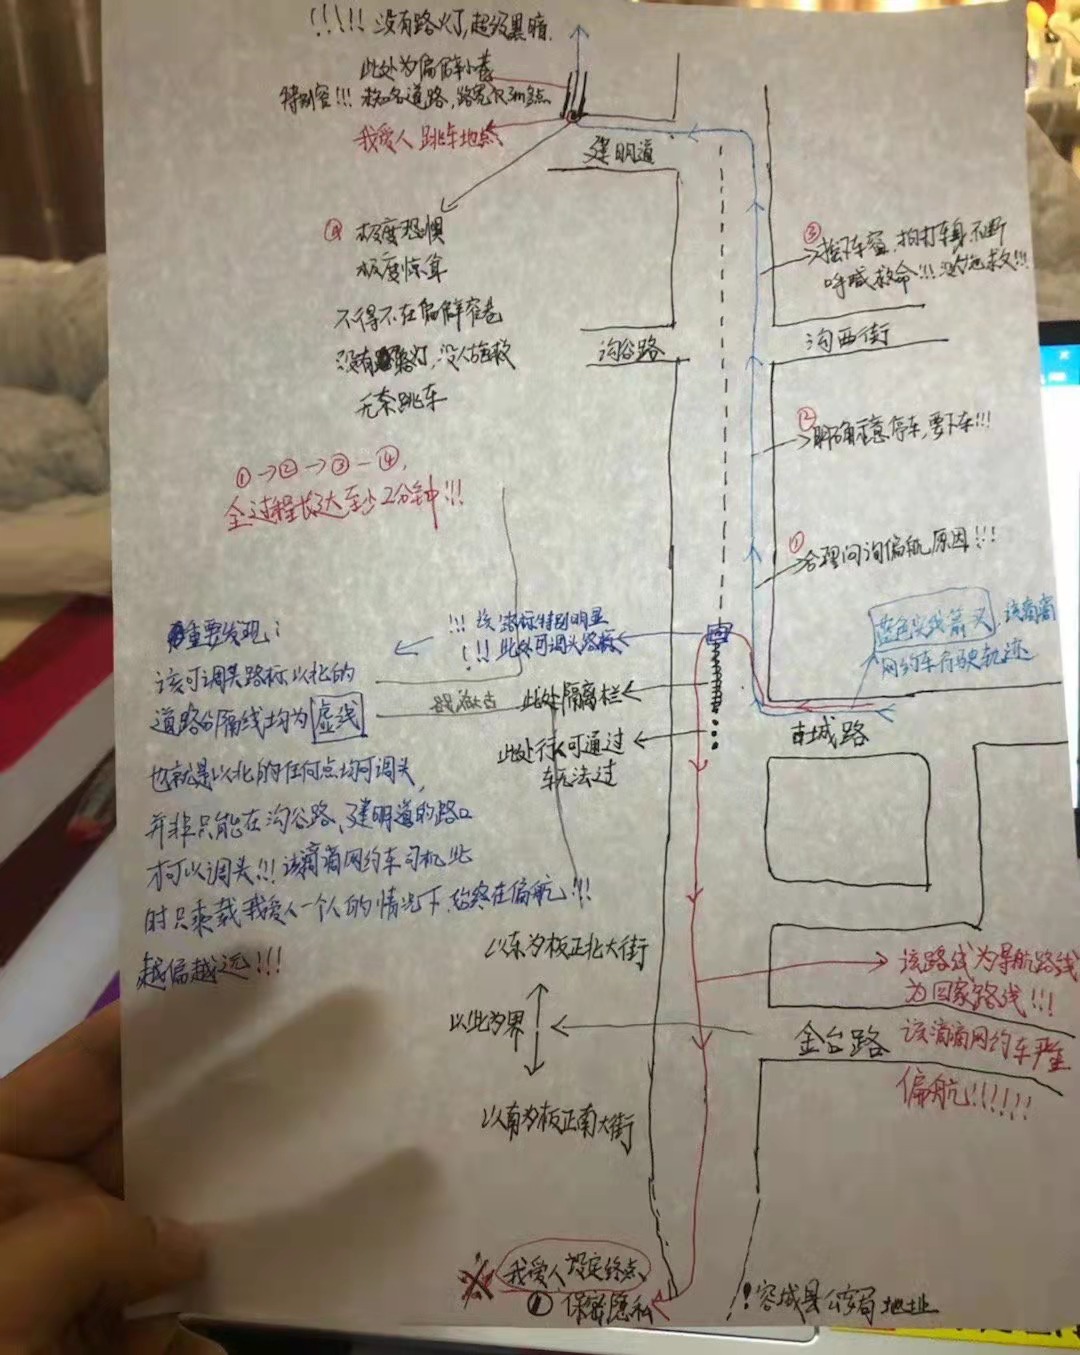 !!!!! 没有路灯,超级黑暗.
此处为偏僻小巷
特别窄!!! 未知名道路,路宽仅3m多点
我爱人 跳车地点
建明道
④ 极度恐惧
极度惊耸
不得不在偏僻窄巷
没有路灯,没人施救
无奈跳车
③
摇下车窗,拍打车身,不断
呼喊救命!!! 没人施救!!!
沟谷路
沟西街
②
明确示意停车,要下车!!!
①→②→③—④,
全过程长达至少2分钟!!!
①
合理问询偏航原因!!!
蓝色实线箭头,该滴滴
网约车行驶轨迹
!!! 该路标特别明显
!!! 此处可调头路标
重要发现:
该可调头路标以北的
道路分隔线均为虚线
也就是以北的任何点均可调头,
并非只能在沟谷路、建明道的路口
才可以调头!!! 该滴滴网约车司机此
时只乘载我爱人一个人的情况下,始终在偏航!!!
越偏越远!!!
此处隔离栏
此处行人可通过
车无法过
城路
以东为板正北大街
以此为界
以南为板正南大街
该路线为导航路线
为回家路线!!!
金台路
该滴滴网约车严重
偏航!!!!!!
我爱人设定终点
保密隐私
!容城县公安局地址